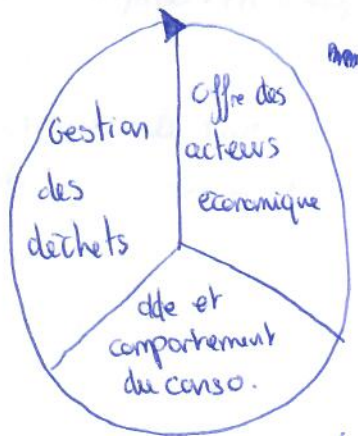 Gestion
des
déchets
offre des
acteurs
économique
dde et
comportement
du conso.